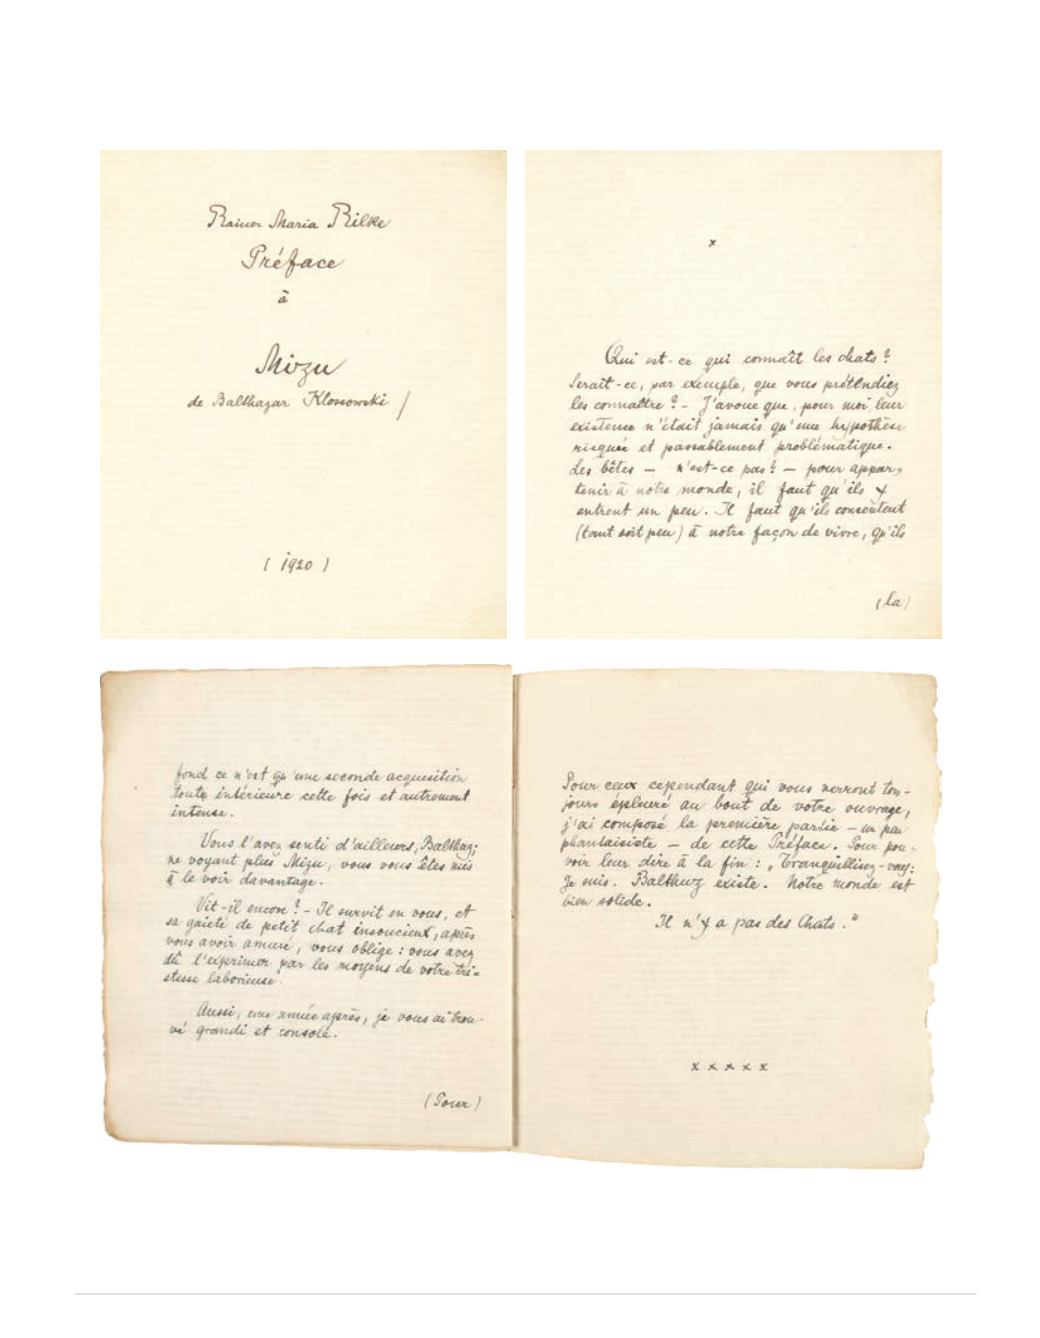 Rainer Maria Rilke
Préface
à
Mizu
de Balthazar Klossowski /
( 1920 )
x
Qui est-ce qui connaît les chats ?
Serait-ce, par exemple, que vous prétendiez
les connaître ? - J'avoue que, pour moi, leur
existence n'était jamais qu'une hypothèse
risquée et passablement problématique.
Les bêtes — n'est-ce pas ? — pour appar-
tenir à notre monde, il faut qu'ils y
entrent un peu. Il faut qu'ils consentent
(tant soit peu) à notre façon de vivre, qu'ils
(la)
fond ce n'est qu'une seconde acquisition
toute intérieure cette fois et autrement
intense.
Vous l'avez senti d'ailleurs, Balthuz;
ne voyant plus Mizu, vous vous êtes mis
à le voir davantage.
Vit-il encore ? - Il survit en vous, et
sa gaieté de petit chat insoucieux, après
vous avoir amusé, vous oblige : vous avez
dû l'exprimer par les moyens de votre tri-
stesse laborieuse.
Aussi, une année après, je vous ai trou-
vé grandi et consolé.
(Pour)
Pour ceux cependant qui vous verront tou-
jours éploré au bout de votre ouvrage,
j'ai composé la première partie — un peu
phantaisiste — de cette Préface. Pour pou-
voir leur dire à la fin : „Tranquillisez-vous:
Je suis. Balthuz existe. Notre monde est
bien solide.
Il n'y a pas des Chats."
x x x x x